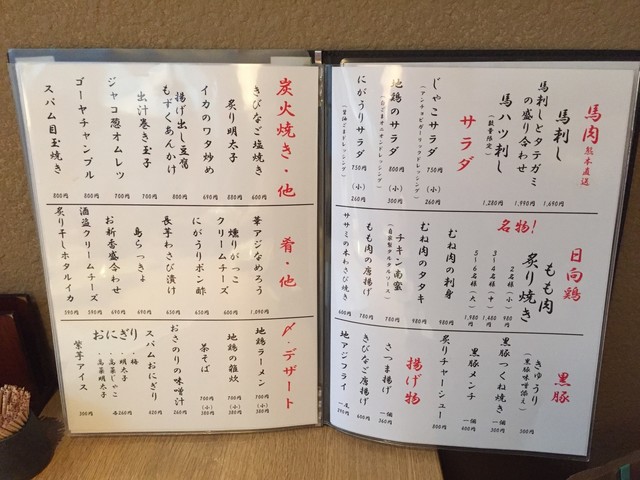 馬肉 熊本直送
馬刺し 1,690円
馬刺しとタテガミ
の盛り合わせ 1,990円
馬ハツ刺し
(数量限定) 1,280円
サラダ
じゃこサラダ 750円 (小)260円
(アンチョビガーリックドレッシング)
地鶏のサラダ 800円 (小)300円
にがうりサラダ 750円 (小)260円
日向鶏
名物!
もも肉
炙り焼き
2名様(小)980円
3〜4名様(中)1,480円
5〜6名様(大)
むね肉の刺身
むね肉のタタキ 980円
チキン南蛮
(自家製タルタルソース) 780円
もも肉の唐揚げ 780円
ササミの本わさび焼き 600円
黒豚
きゅうり
(黒豚味噌添え) 500円
黒豚つくね焼き 一個 300円
黒豚メンチ 一個 600円
炙りチャーシュー 800円
揚げ物
さつま揚げ 一個 260円
きびなご唐揚げ 600円
地アジフライ
炭火焼き・他
きびなご塩焼き 600円
炙り明太子 880円
イカのワタ炒め 690円
揚げ出し豆腐
もずくあんかけ 800円
出汁巻き玉子 700円
ジャコ葱オムレツ 700円
ゴーヤチャンプル 800円
スパム目玉焼き 800円
肴・他
華アジなめろう 1,090円
燻りがっこ
クリームチーズ 980円
にがうりポン酢
長芋わさび漬け
島らっきょ 690円
お新香盛合わせ 690円
酒盗クリームチーズ 590円
炙り干しホタルイカ 390円
〆・デザート
地鶏ラーメン 700円 (小)380円
地鶏の雑炊 700円 (小)380円
茶そば 700円 (小)380円
おさのりの味噌汁 260円
スパムおにぎり
おにぎり
・梅
・明太子
・高菜じゃこ
・高菜明太子
各260円
紫芋アイス 300円